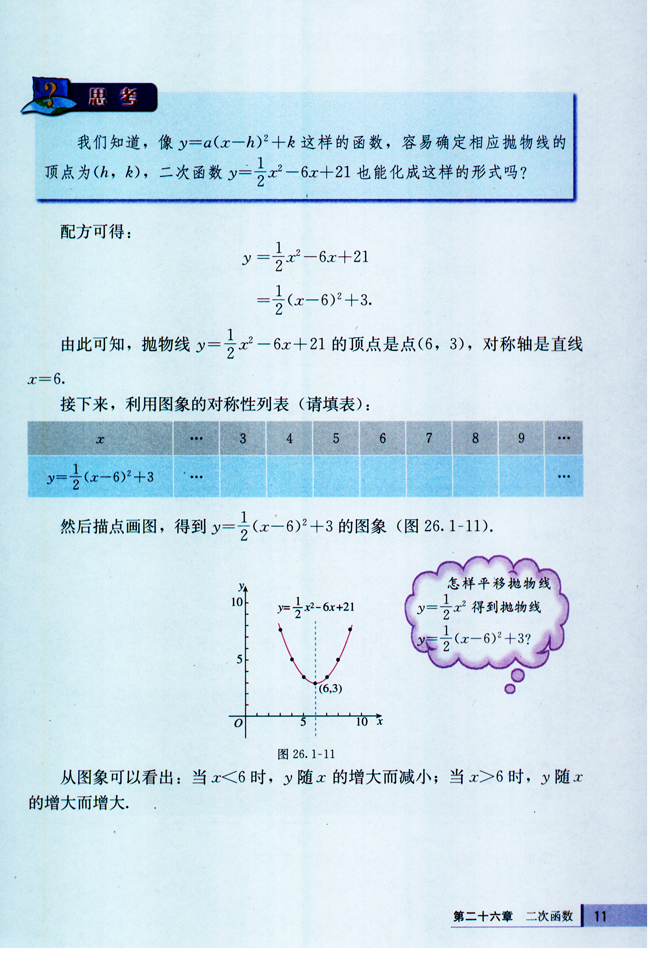 ?
思考
我们知道，像 y=a(x−h)²+k 这样的函数，容易确定相应抛物线的
顶点为(h，k)，二次函数 y=1/2x²−6x+21 也能化成这样的形式吗？
配方可得：
y=1/2x²−6x+21
=1/2(x−6)²+3.
由此可知，抛物线 y=1/2x²−6x+21 的顶点是点(6，3)，对称轴是直线
x=6.
接下来，利用图象的对称性列表（请填表）：
x … 3 4 5 6 7 8 9 …
y=1/2(x−6)²+3 … …
然后描点画图，得到 y=1/2(x−6)²+3 的图象（图 26.1-11）.
怎样平移抛物线
y=1/2x² 得到抛物线
y=1/2(x−6)²+3?
y
10
y=1/2x²−6x+21
5
(6,3)
O 5 10 x
图 26.1-11
从图象可以看出：当 x<6 时，y 随 x 的增大而减小；当 x>6 时，y 随 x
的增大而增大.
第二十六章 二次函数 11